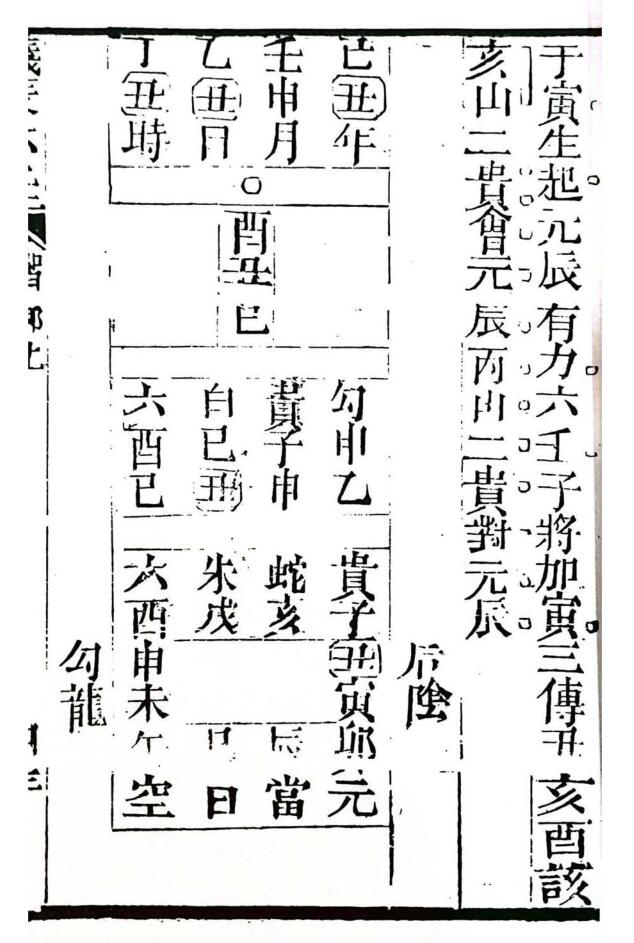 于寅生起元辰有力六壬子將加寅三傳丑亥酉該
亥山二貴會元辰丙山二貴對元辰
后陰
己丑年
壬申月
乙丑日
丁丑時
酉丑巳
勾申乙
貴子申
白巳丑
六酉巳
貴子丑寅卯元
蛇亥 辰當
朱戌 巳日
六酉申未午空
勾龍